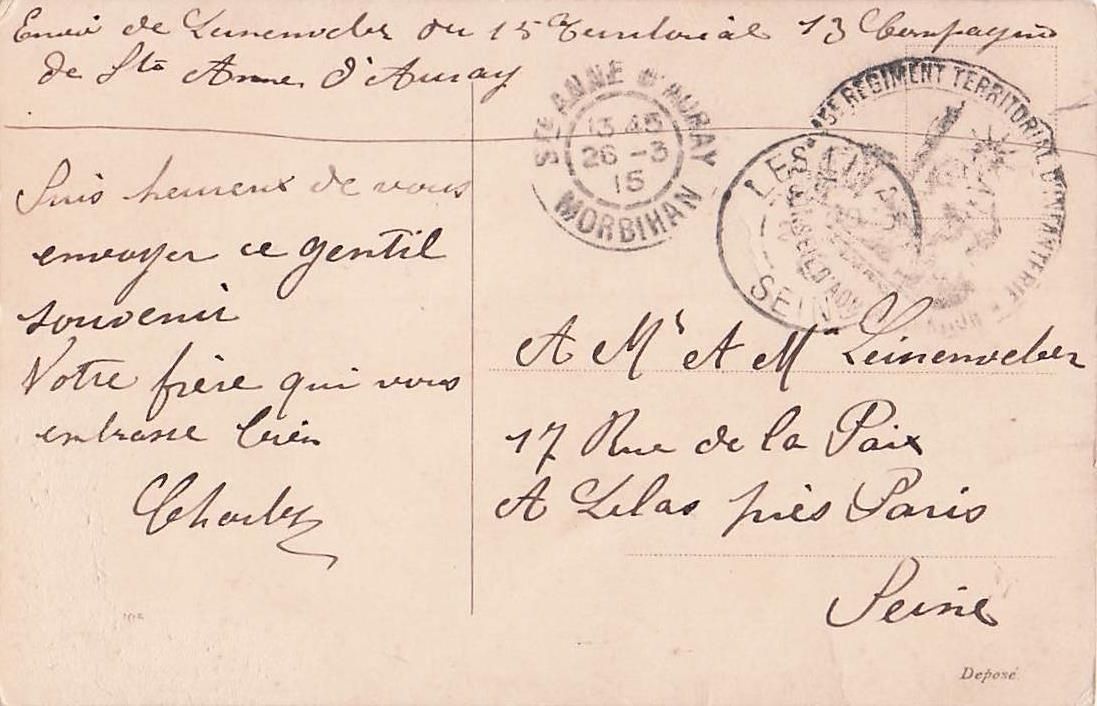 Envoi de Leinenveber du 15e Territorial 13 Compagnie
de Ste Anne d'Auray
Suis heureux de vous
envoyer ce gentil
souvenir
Votre frère qui vous
embrasse bien
Charles
STE ANNE D'AURAY
13 45
26 -3
15
MORBIHAN
5E REGIMENT TERRITORIAL D'INFANTERIE
LES
SEIN
A Mr A Mme Leinenveber
17 Rue de la Paix
A Lilas près Paris
Seine
Déposé